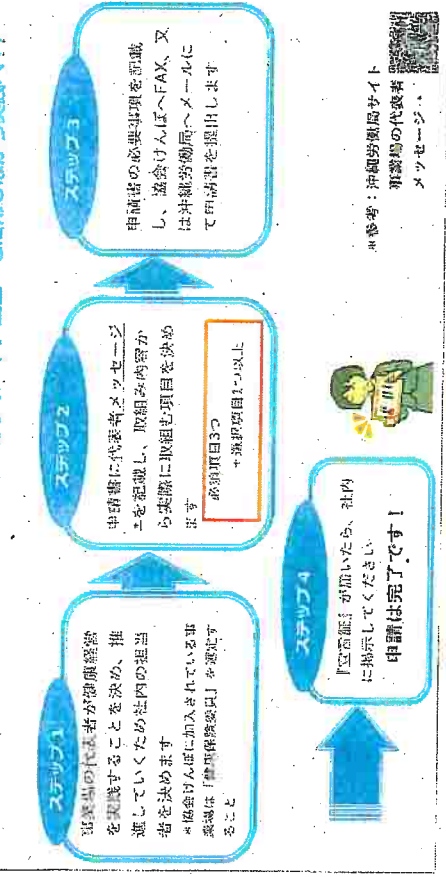 ステップ1
事業場の代表者が健康経営
を実践することを決め、推
進していくため社内の担当
者を決めます
*協会けんぽに加入されている事
業場は「健康保険委員」を選定す
ること
ステップ2
申請書に代表者メッセージ
*を記載し、取組み内容か
ら実際に取組む項目を決め
ます
必須項目3つ
+選択項目1つ以上
ステップ3
申請書の必要事項を記載
し、協会けんぽへFAX、又
は沖縄労働局へメールに
て申請書を提出します
ステップ4
『宣言証』が届いたら、社内
に掲示してください
申請は完了です!
*参考:沖縄労働局サイト
事業場の代表者
メッセージ